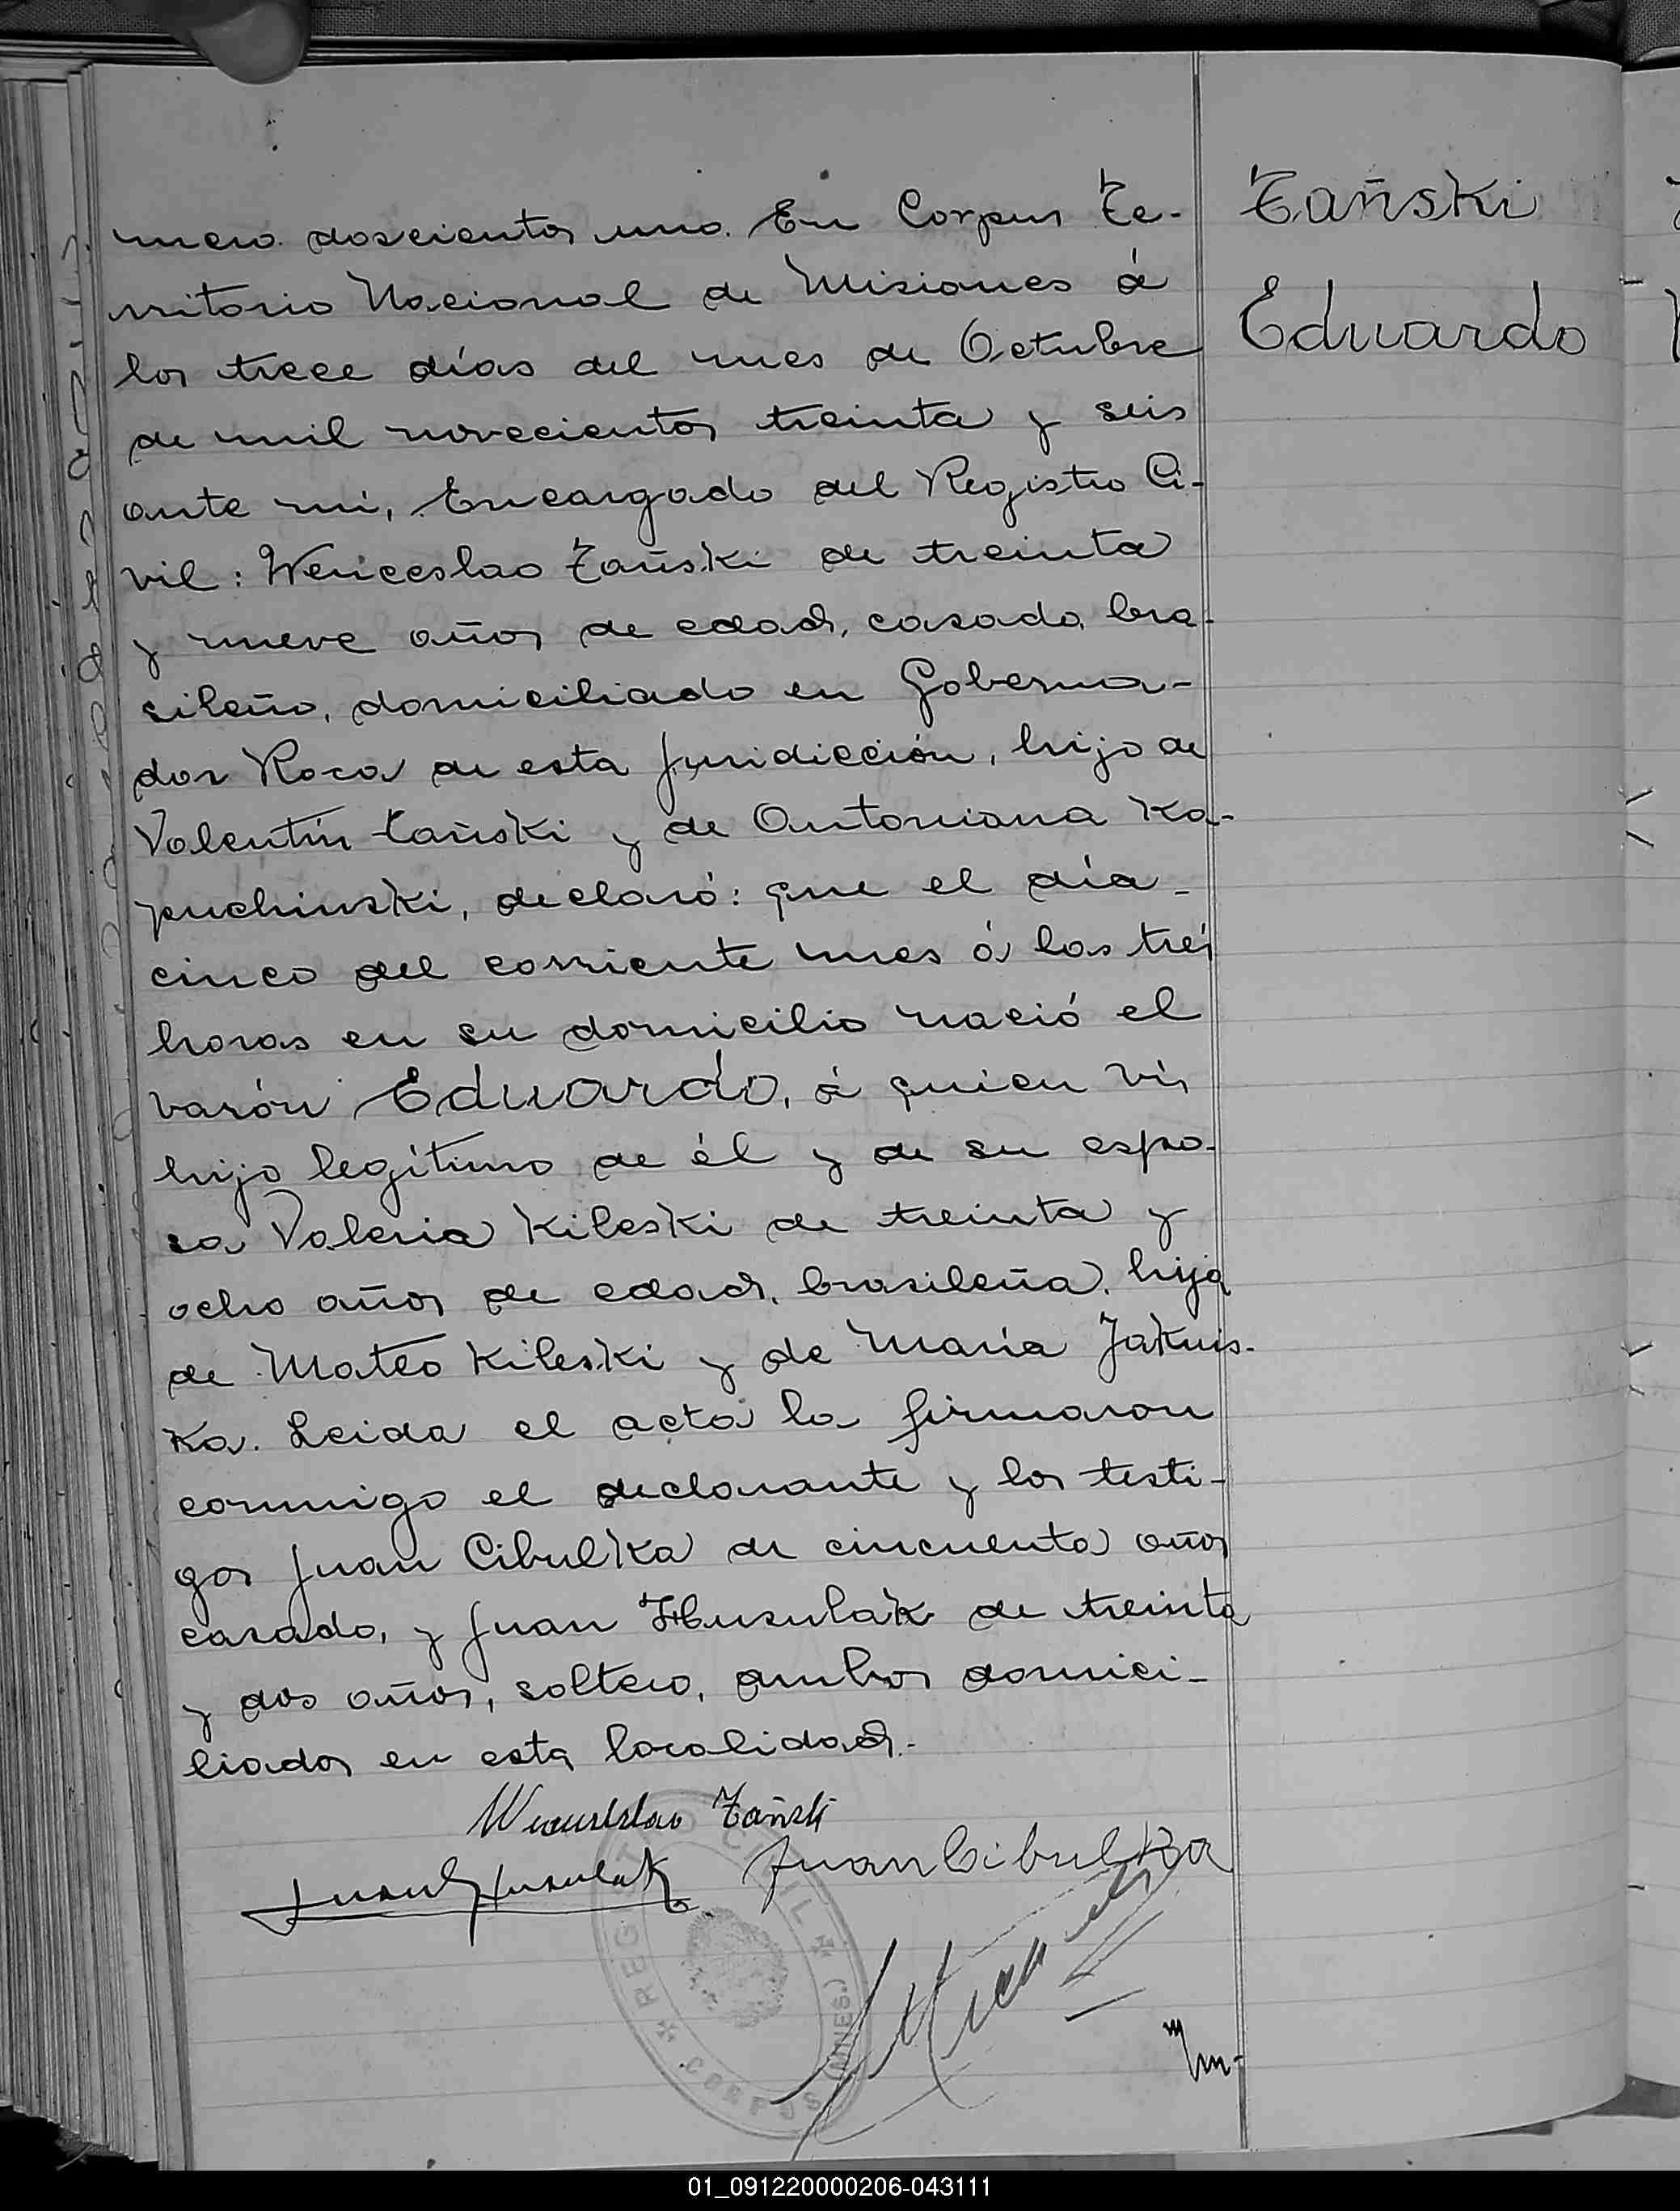 mero doscientos uno. En Corpus Te-
rritorio Nacional de Misiones á
los trece días del mes de Octubre
de mil novecientos treinta y seis
ante mi, Encargado del Registro Ci-
vil: Wenceslao Tañski de treinta
y nueve años de edad, casado, bra-
sileño, domiciliado en Goberna-
dor Roca de esta juridicción, hijo de
Valentín Tañski y de Antoniana Ka-
puchinski, declaró: que el día
cinco del corriente mes á las tres
horas en su domicilio nació el
varón Eduardo, á quien ví,
hijo legítimo de él y de su espo-
sa Valeria Kileski de treinta y
ocho años de edad, brasileña, hija
de Mateo Kileski y de María Jakuis-
ka. Leida el acta la firmaron
conmigo el declarante y los testi-
gos Juan Cibulka de cincuenta años
casado, y Juan Husulak de treinta
y dos años, soltero, ambos domici-
liados en esta localidad.-
Tañski
Eduardo
Wenceslao Tañski
Juan Husulak Juan Cibulka
REGISTRO CIVIL
CORPUS (MNES.)
01_091220000206-043111